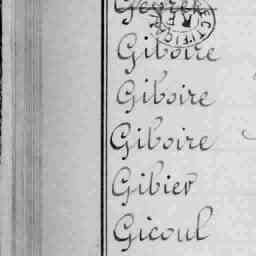 Giboire
Giboire
Giboire
Gibier
Gicoul